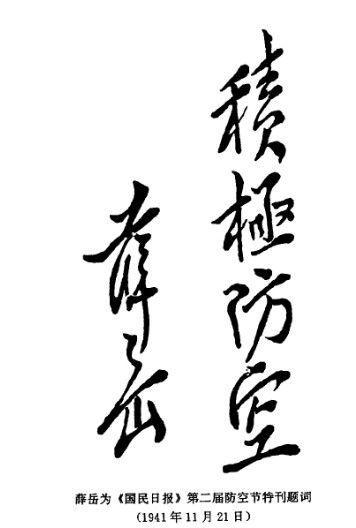 積極防空
薛岳
薛岳为《国民日报》第二届防空节特刊题词
(1941年11月21日)